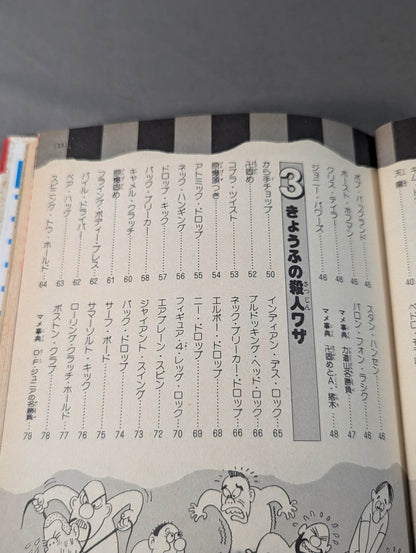 ボブ・バックランド 45
ホースト・ホフマン 45
クリス・テイラー 46
ジョニー・パワーズ 46
スタン・ハンセン 46
バロン・フォン・ラシク 46
マメ事典 力道山名勝負 47
マメ事典 卍固めとA・猪木 48
3 きょうふの殺人ワザ
から手チョップ 50
卍固め 52
コブラ・ツイスト 54
原爆頭つき 54
アトミック・ドロップ 55
ネック・ハンギング 56
ドロップ・キック 57
バック・ブリーカー 58
キャメル・クラッチ 60
原爆固め 61
フライング・ボディー・プレス 62
パイル・ドライバー 62
ベア・ハッグ 63
スピニング・トウ・ホールド 64
インディアン・デス・ロック 65
ブルドッキング・ヘッド・ロック 66
ネック・ブリーカー・ドロップ 66
エルボー・ドロップ 68
ニー・ドロップ 69
フィギュア・4・レッグ・ロック 70
エアプレーン・スピン 72
ジャイアント・スイング 73
バック・ドロップ 74
サーフ・ボード 75
サマーソルト・キック 76
ローリング・クラッチ・ホールド 77
ボストン・クラブ 78
マメ事典 D・F・ジュニアの名勝負 79